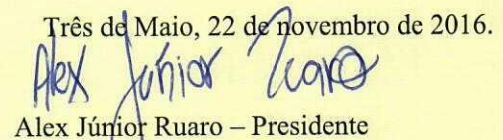 Três de Maio, 22 de novembro de 2016.
Alex Júnior Ruaro
Alex Júnior Ruaro – Presidente